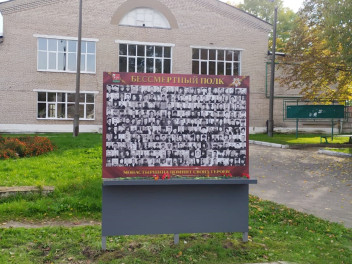 БЕССМЕРТНЫЙ ПОЛК
ПОМНИТ СВОИХ ГЕРОЕВ